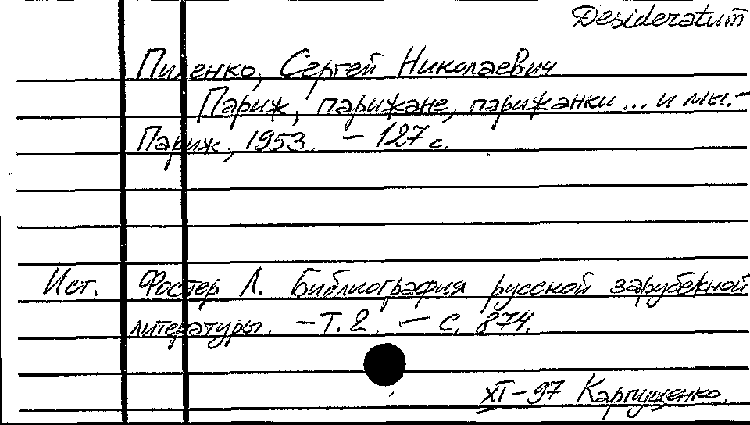 Desideratum
Пиленко, Сергей Николаевич
Париж, парижане, парижанки... и мы.–
Париж, 1953. – 127 с.
Ист. Фостер Л. Библиография русской зарубежной
литературы. – Т. 2. – С. 874.
XI–97 Карпущенко.